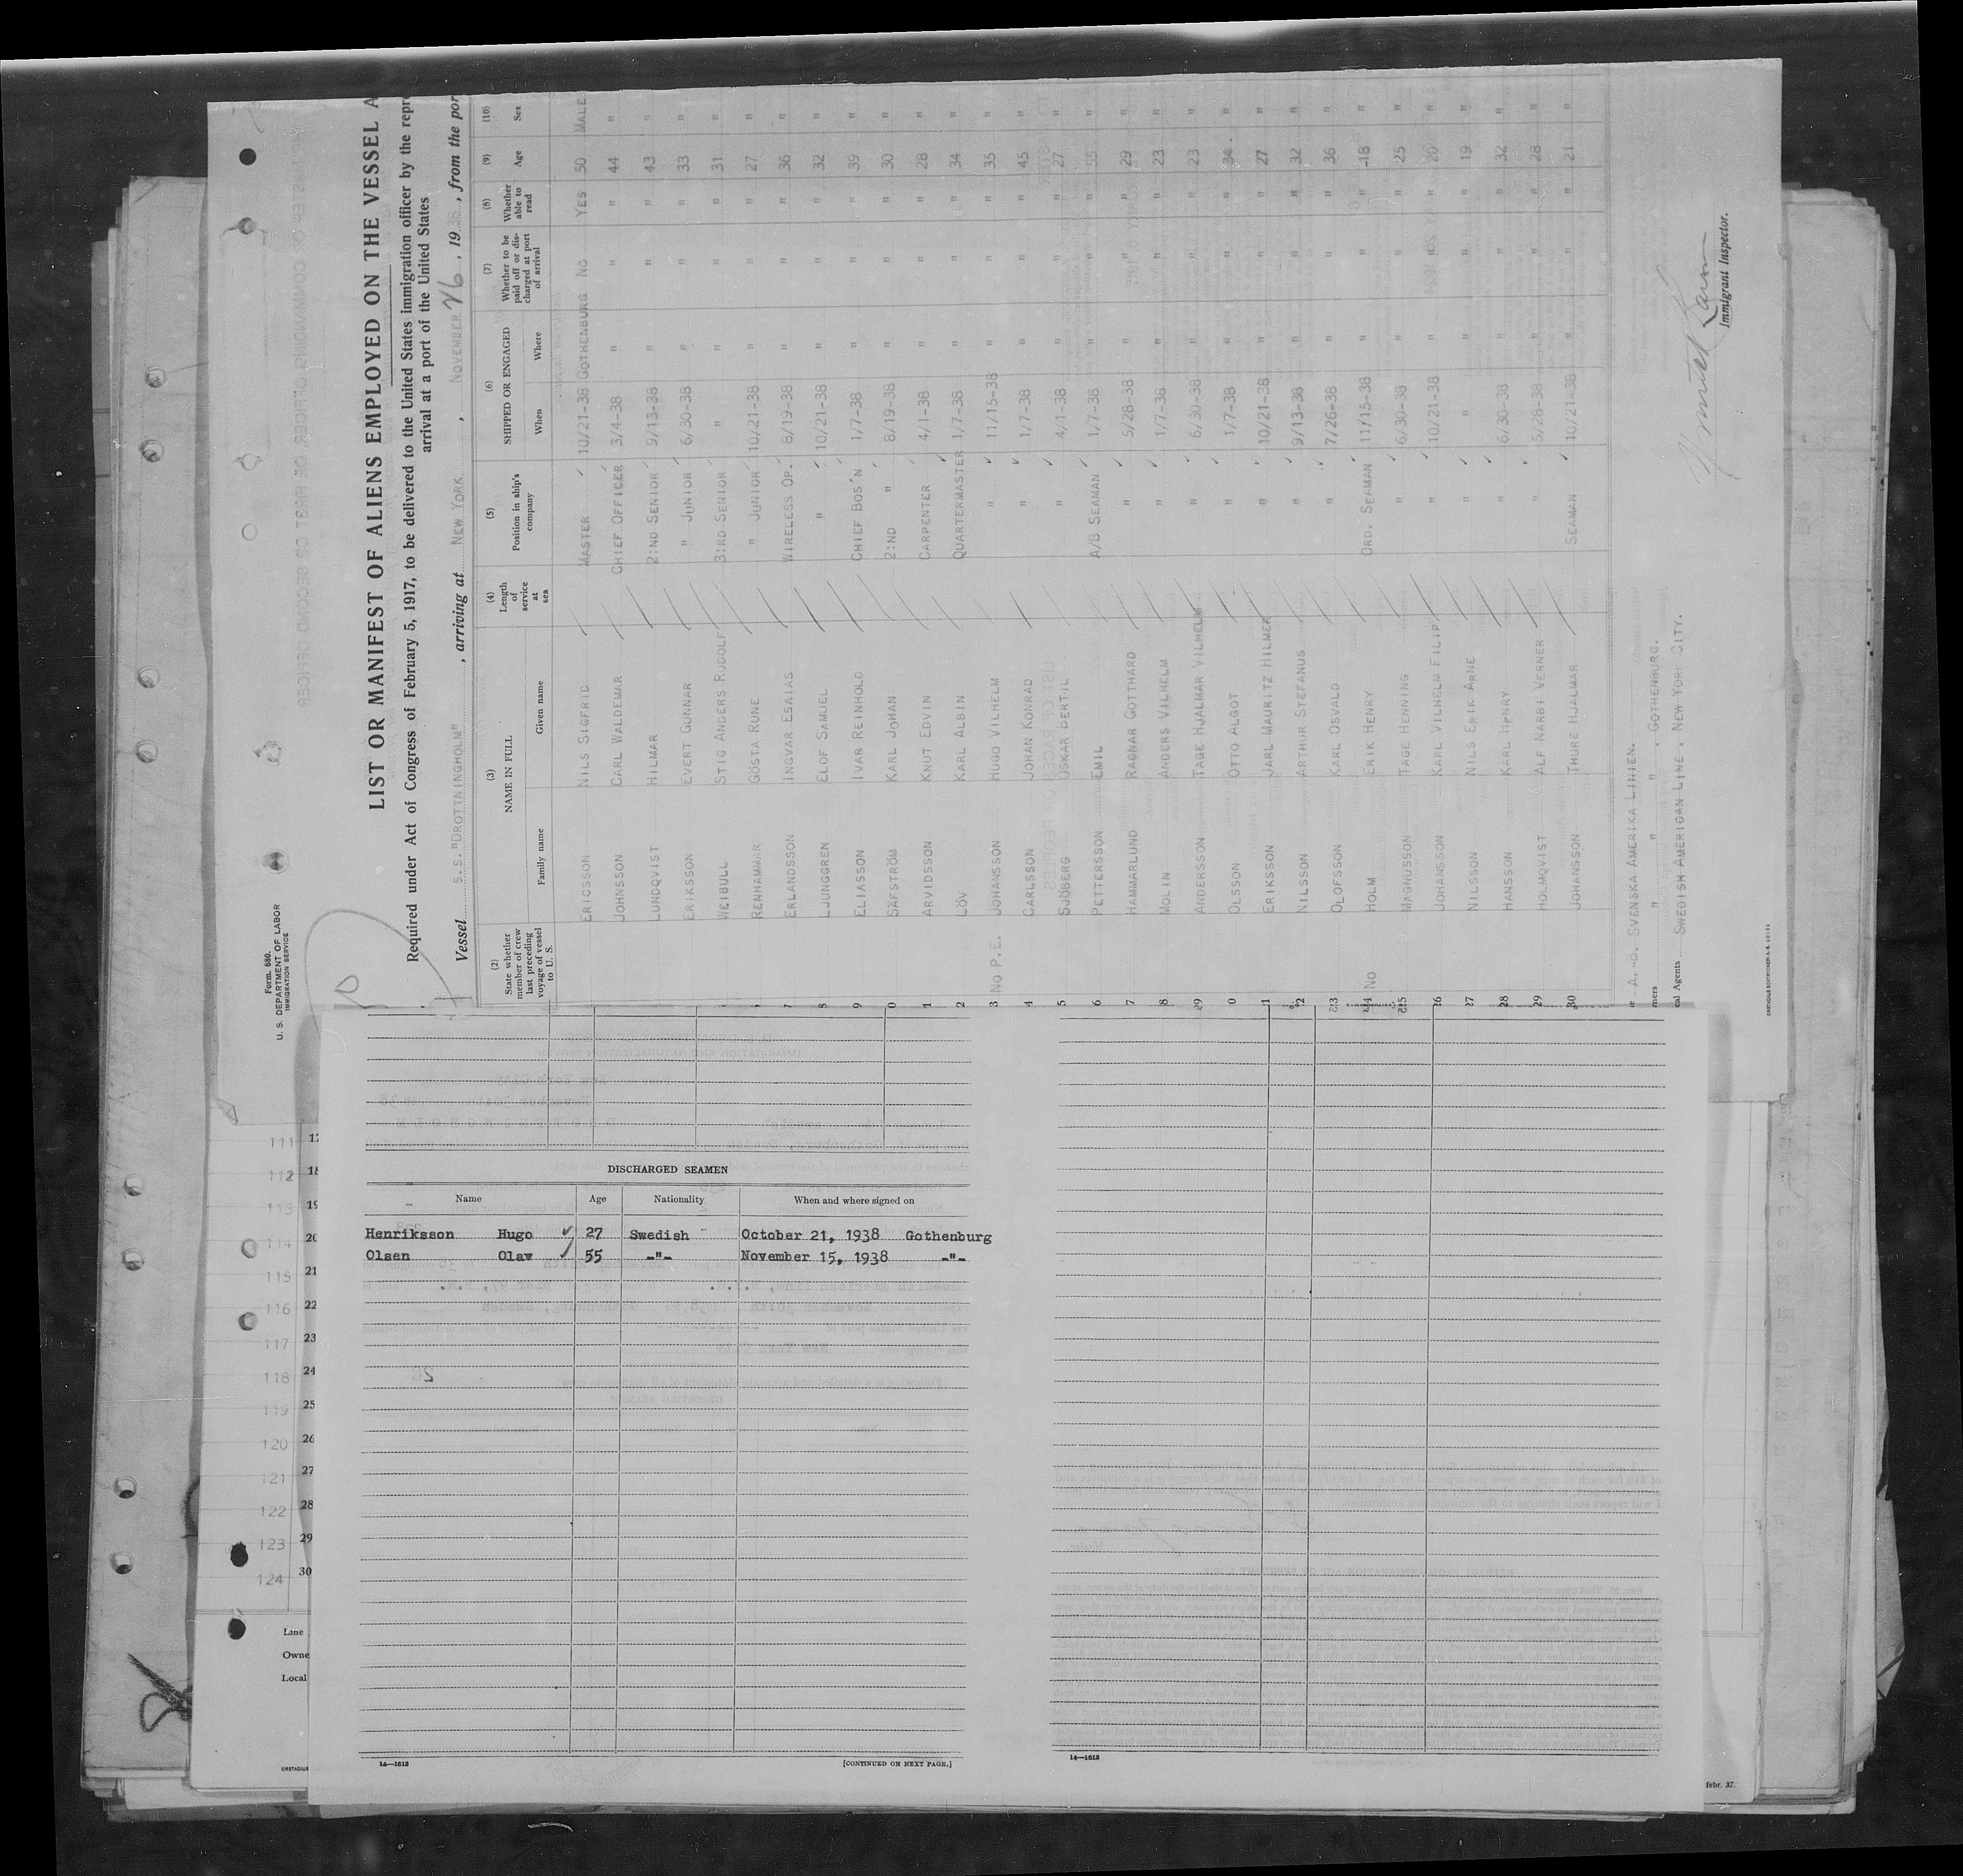 Form 680.
U. S. DEPARTMENT OF LABOR
IMMIGRATION SERVICE
LIST OR MANIFEST OF ALIENS EMPLOYED ON THE VESSEL A
Required under Act of Congress of February 5, 1917, to be delivered to the United States immigration officer by the repre
arrival at a port of the United States
Vessel S.S. "DROTTNINGHOLM", arriving at NEW YORK, NOVEMBER 26, 1938, from the por
(2) State whether member of crew last preceding voyage of vessel to U. S. (3) NAME IN FULL Family name Given name (4) Length of service at sea (5) Position in ship's company (6) SHIPPED OR ENGAGED When Where (7) Whether to be paid off or discharged at port of arrival (8) Whether able to read (9) Age (10) Sex
ERICSSON NILS SIGFRID MASTER 10/21-38 GOTHENBURG NO YES 50 MALE
JOHNSSON CARL WALDEMAR CHIEF OFFICER 3/4-38 " " " 44 "
LUNDQVIST HILMAR 2:ND SENIOR 9/13-38 " " " 43 "
ERIKSSON EVERT GUNNAR " JUNIOR 6/30-38 " " " 33 "
WEIBULL STIG ANDERS RUDOLF 3:RD SENIOR " " " " 31 "
RENHAMMAR GÖSTA RUNE " JUNIOR 10/21-38 " " " 27 "
7 ERLANDSSON INGVAR ESAIAS WIRELESS OP. 8/19-38 " " " 36 "
8 LJUNGGREN ELOF SAMUEL " 10/21-38 " " " 32 "
9 ELIASSON IVAR REINHOLD CHIEF BOS'N 1/7-38 " " " 39 "
0 SÄFSTRÖM KARL JOHAN 2:ND " 8/19-38 " " " 30 "
1 ARVIDSSON KNUT EDVIN CARPENTER 4/1-38 " " " 28 "
2 LÖV KARL ALBIN QUARTERMASTER 1/7-38 " " " 34 "
3 NO P.E. JOHANSSON HUGO VILHELM " 11/15-38 " " " 35 "
4 CARLSSON JOHAN KONRAD " 1/7-38 " " " 45 "
5 SJÖBERG OSKAR BERTIL " 4/1-38 " " " 27 "
6 PETTERSSON EMIL A/B SEAMAN 1/7-38 " " " "
7 HAMMARLUND RAGNAR GOTTHARD " 5/28-38 " " " 29 "
8 MOLIN ANDERS VILHELM " 1/7-38 " " " 23 "
29 ANDERSSON TAGE HJALMAR VILHELM " 6/30-38 " " " 23 "
0 OLSSON OTTO ALGOT " 1/7-38 " " " 34 "
21 ERIKSSON JARL MAURITZ HILMER " 10/21-38 " " " 27 "
22 NILSSON ARTHUR STEFANUS " 9/13-38 " " " 32 "
23 OLOFSSON KARL OSVALD " 7/26-38 " " " 36 "
24 NO HOLM ERIK HENRY ORD. SEAMAN 11/15-38 " " " 18 "
25 MAGNUSSON TAGE HENNING " 6/30-38 " " " 25 "
26 JOHANSSON KARL VILHELM FILIP " 10/21-38 " " " 20 "
27 NILSSON NILS ERIK ARNE " " " " " 19 "
28 HANSSON KARL HENRY " 6/30-38 " " " 32 "
29 HOLMQVIST ALF NARBI VERNER " 5/28-38 " " " 28 "
30 JOHANSSON THURE HJALMAR SEAMAN 10/21-38 " " " 21 "
A.-B. SVENSKA AMERIKA LINIEN.
" " " . GOTHENBURG.
cal Agents SWEDISH AMERICAN LINE. NEW YORK CITY.
Immigrant Inspector.
DISCHARGED SEAMEN
Name Age Nationality When and where signed on
Henriksson Hugo 27 Swedish October 21, 1938 Gothenburg
Olsen Olav 55 -"- November 15, 1938 -"-
14—1613
[CONTINUED ON NEXT PAGE.]
14—1613
111 17
112 18
113 19
114 20
115 21
116 22
117 23
118 24
119 25
120 26
121 27
122 28
123 29
124 30
Line
Owne
Local
febr. 37.